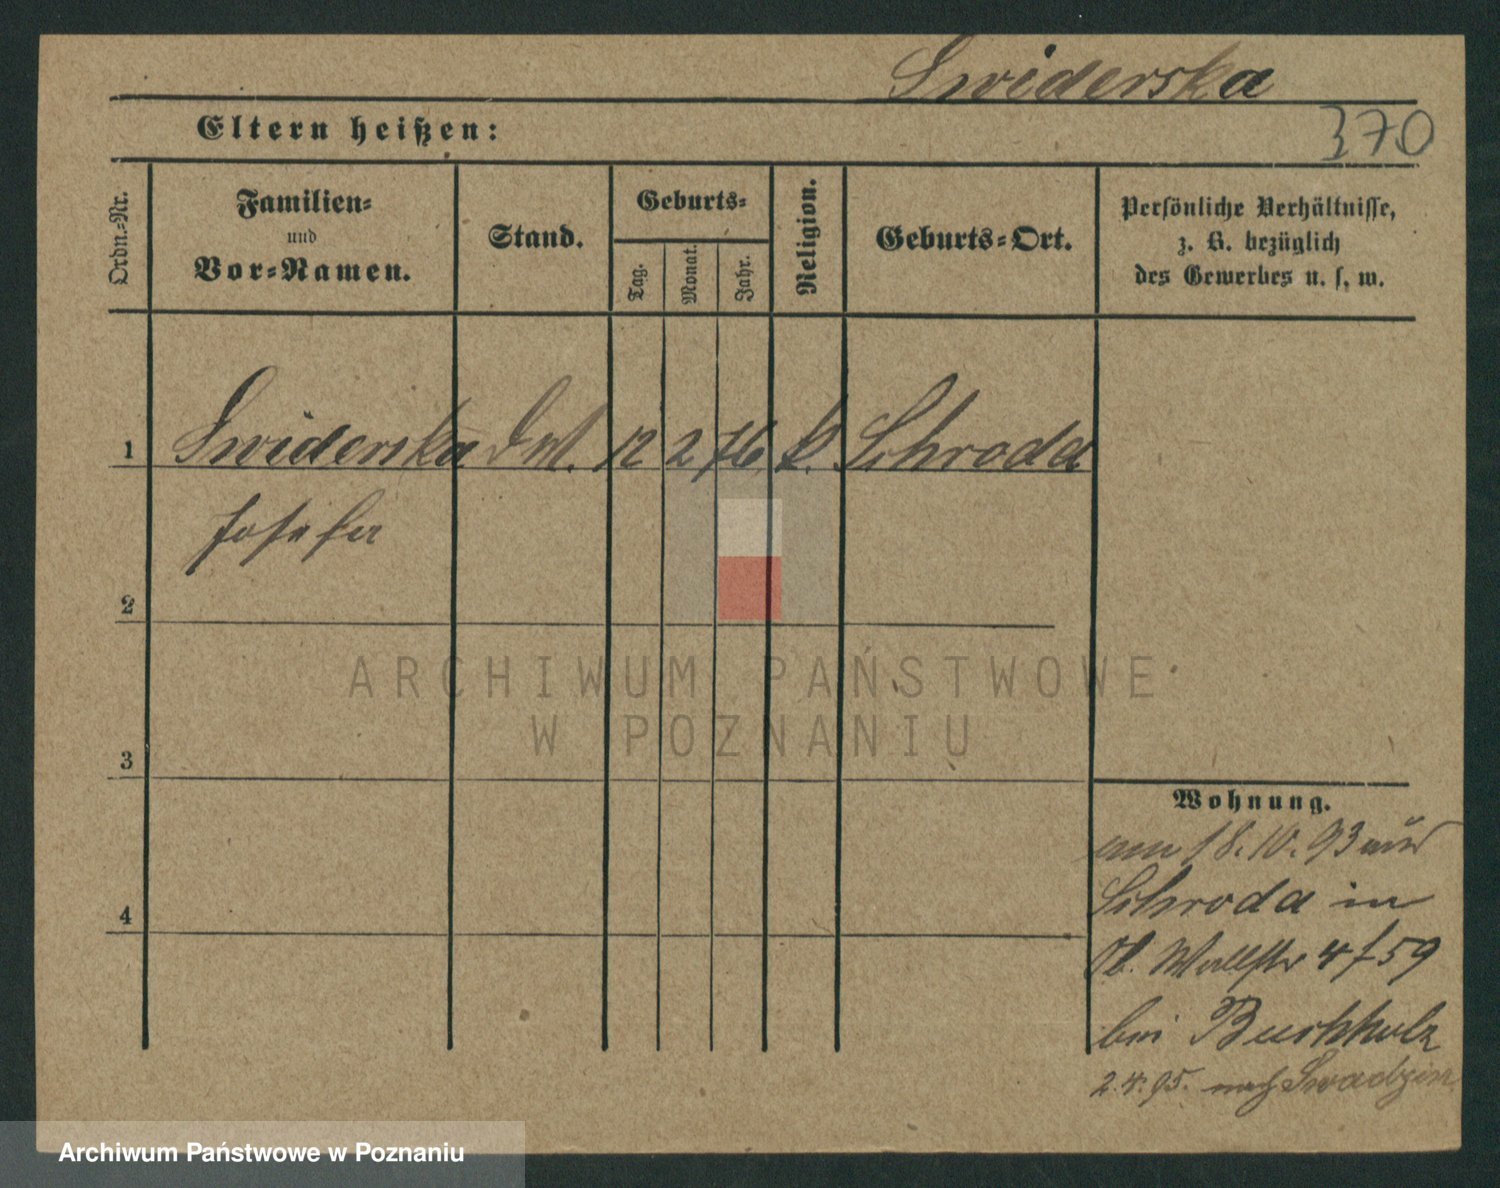 Swiderska
Eltern heißen:
370
Ordn.-Nr.
Familien-
und
Vor-Namen.
Stand.
Geburts-
Tag.
Monat.
Jahr.
Religion.
Geburts-Ort.
Persönliche Verhältnisse,
z. B. bezüglich
des Gewerbes u. s. w.
1 Swiderska 12 2 76 k. Schroda
Josefa
2
ARCHIWUM PAŃSTWOWE
W POZNANIU
3
Wohnung.
am 18.10.93 aus
Schroda in
4
Ob. Wallstr 4 f 59
bei Buchholz
2.4.95. nach Swadzim
Archiwum Państwowe w Poznaniu